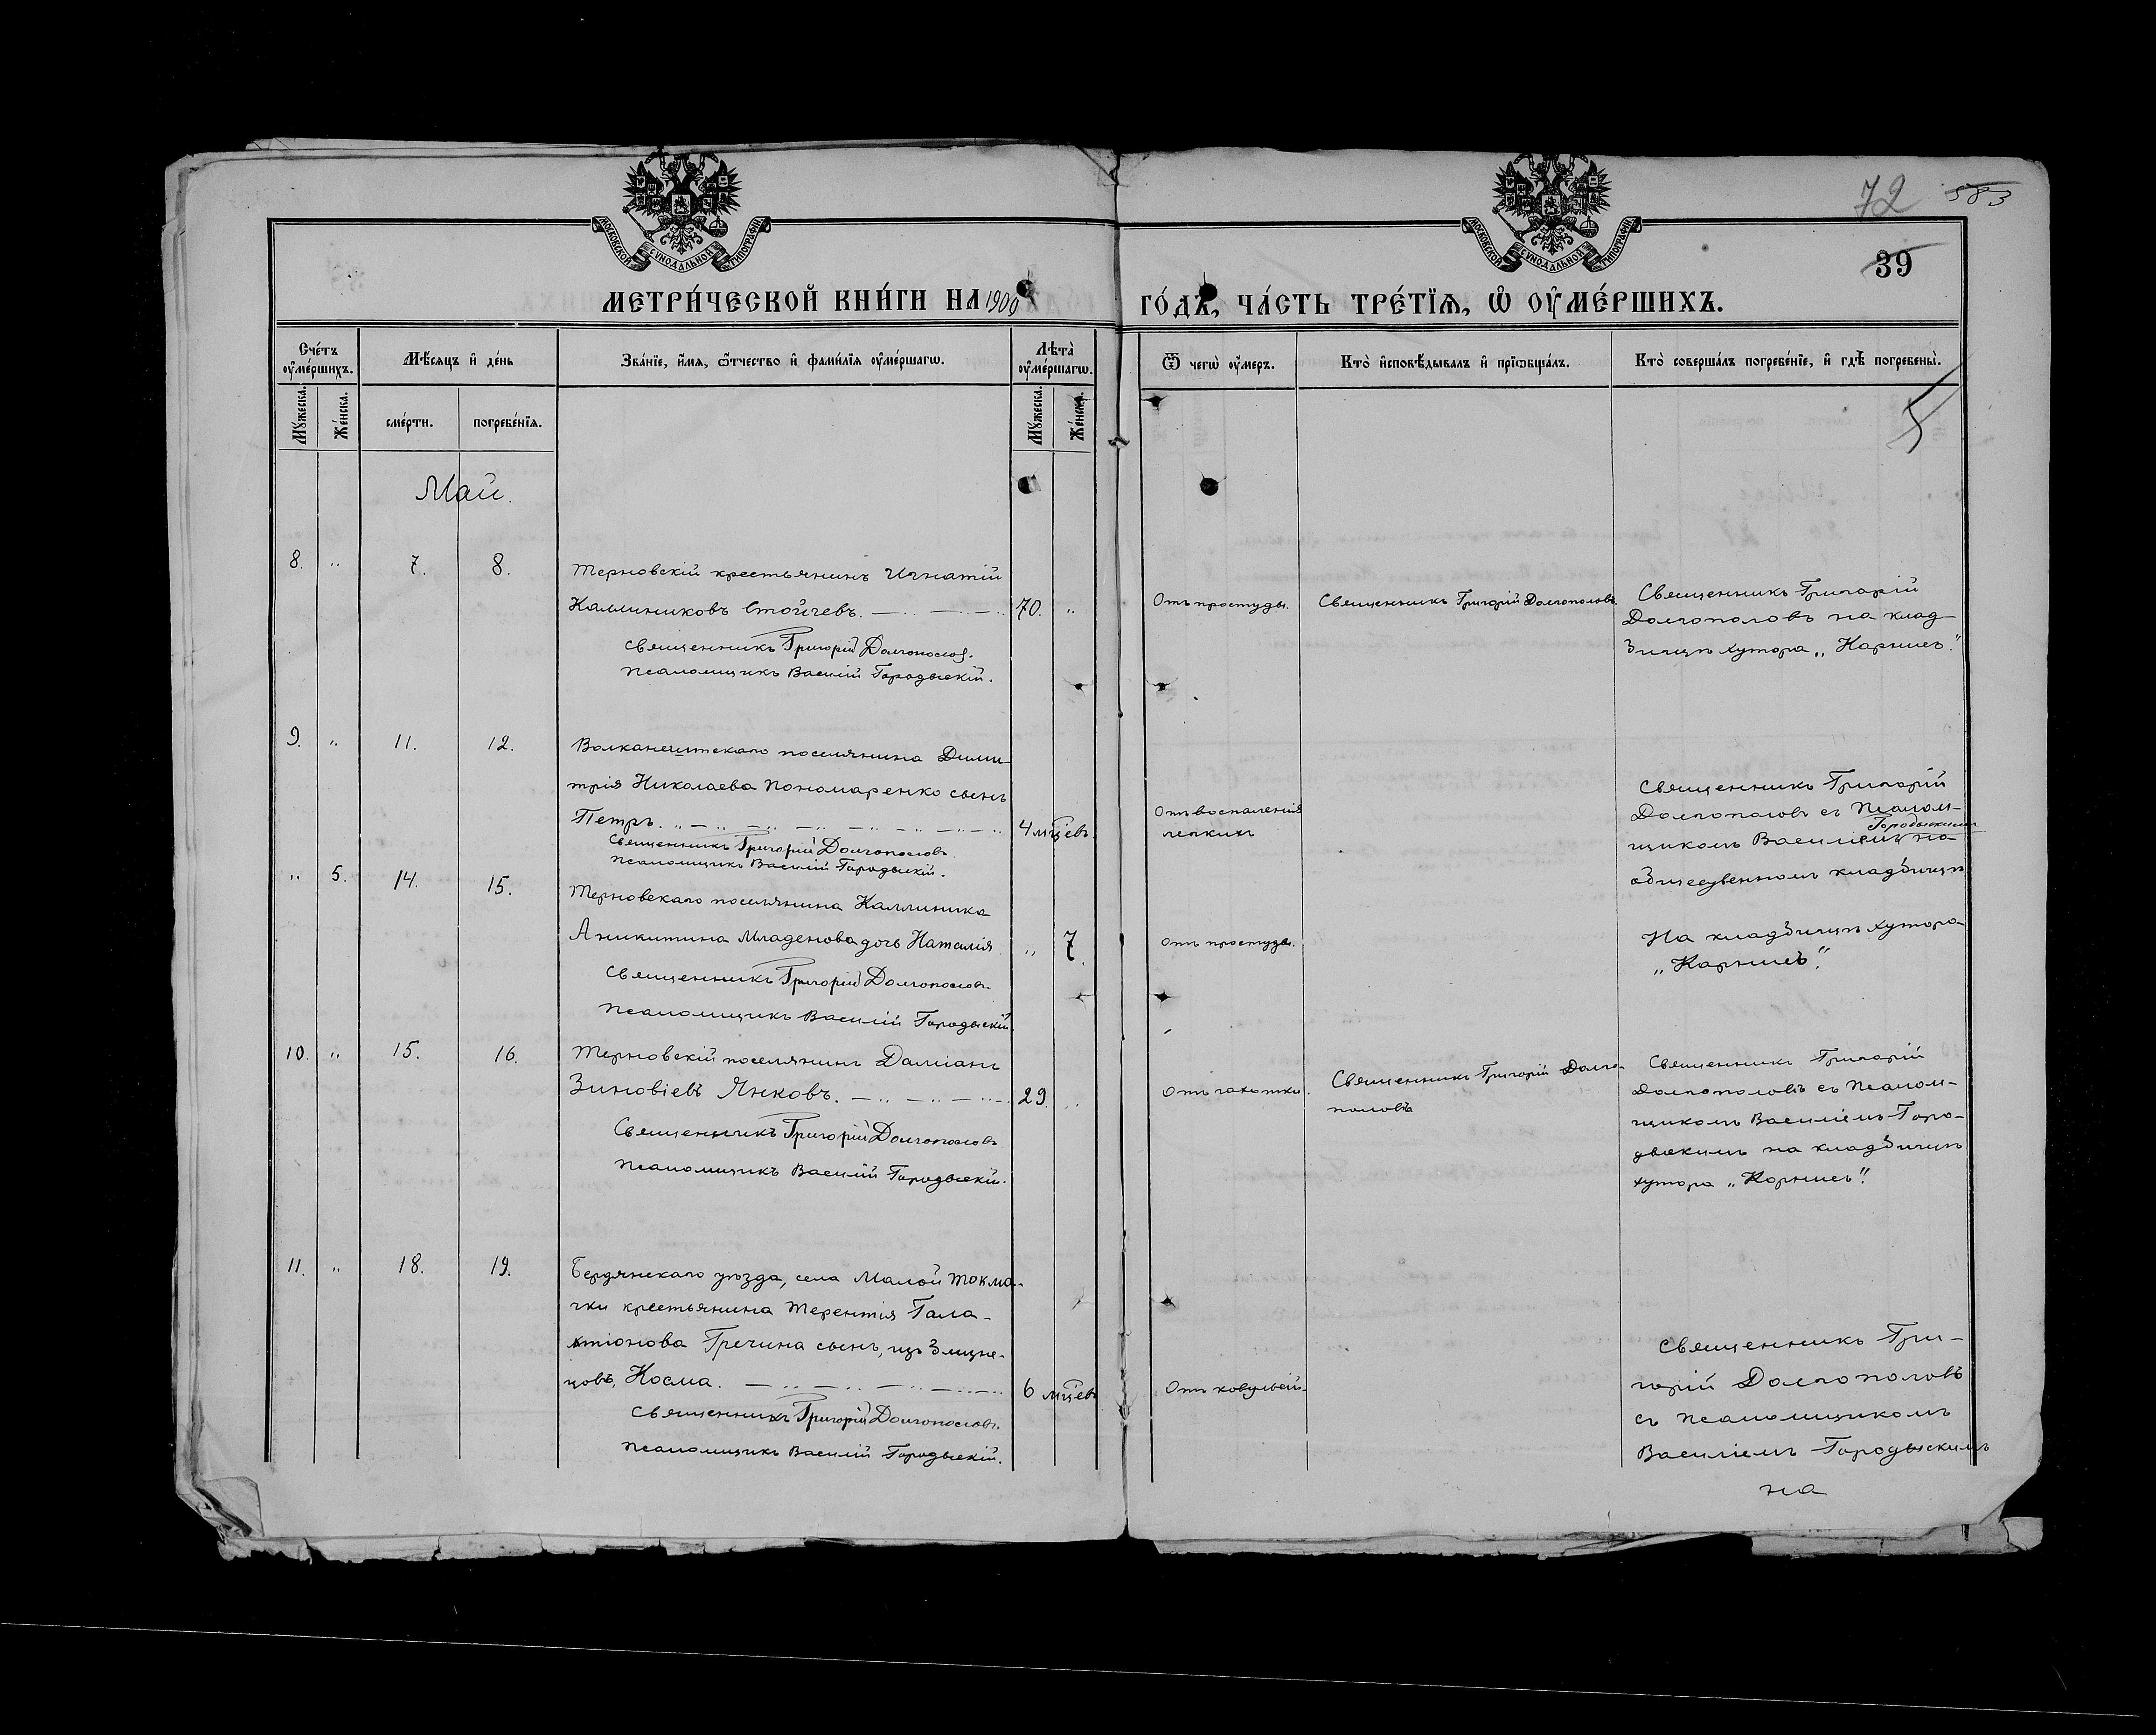 72 583
39
МОСКОВСКОЙ СУНОДАЛЬНОЙ ТИПОГРАФІИ
МОСКОВСКОЙ СУНОДАЛЬНОЙ ТИПОГРАФІИ
МЕТРИ́ЧЕСКОЙ КНИ́ГИ НА 1909 ГО́ДЪ, ЧА́СТЬ ТРЕ́ТІѦ, Ѡ҆ ОУ҆МЕ́РШИХЪ.
Сче́тъ оу҆ме́ршихъ.
Мѣ́сяцъ и҆ де́нь
Зва́нїе, и҆́мѧ, ѻ҆́тчество и҆ фами́лїѧ оу҆ме́ршагѡ.
Лѣта̀ оу҆ме́ршагѡ.
Ѿ чегѡ̀ оу҆́меръ.
Кто̀ и҆сповѣ́дывалъ и҆ прїѡбща́лъ.
Кто̀ соверша́лъ погребе́нїе, и҆ гдѣ̀ погребены̀.
Му́жеска. Же́нска. сме́рти. погребе́нїѧ. Му́жеска. Же́нска.
5
Май.
8. „ 7. 8.
Терновскій крестьянинъ Игнатій
Каллиниковъ Стойчевъ. 70. „
Священникъ Григорій Долгополов.
Псаломщикъ Василій Городыскій.
Отъ простуды.
Священникъ Григорій Долгополовъ.
Священникъ Григорій
Долгополовъ на клад
бищѣ хутора „Карниз“.
9. „ 11. 12.
Волканештскаго поселянина Дими
трія Николаева Пономаренко сынъ
Петръ. 4 мѣсцевъ.
Священникъ Григорій Долгополовъ.
Псаломщикъ Василій Городыскій.
Отъ воспаленія
легкихъ
Священникъ Григорій
Долгополовъ съ Псалом-
Городыскимъ
щикомъ Василіемъ на
общественномъ кладбищѣ
„ 5. 14. 15.
Терновскаго поселянина Каллиника
Аникитина Младенова дочь Наталія „ 7.
Священникъ Григорій Долгополовъ.
Псаломщикъ Василій Городыскій.
Отъ простуды.
На кладбищѣ хутора
10. „ 15. 16.
Терновскій поселянинъ Даміанъ
Зиновіевъ Янковъ. 29. „
Священникъ Григорій Долгополовъ
Псаломщикъ Василій Городыскій.
Отъ чахотки.
Священникъ Григорій Долго-
половъ
Священникъ Григорій
Долгополовъ съ Псалом-
щикомъ Василіемъ Горо-
дыскимъ на кладбищѣ
хутора
11. „ 18. 19.
Бердянскаго уѣзда, села Малой Токма-
чки крестьянина Терентія Гала-
ктіонова Гречина сынъ, изъ близне-
цовъ, Косма. 6 мѣсцевъ
Священникъ Григорій Долгополовъ.
Псаломщикъ Василій Городыскій.
Священникъ Гри-
горій Долгополовъ
съ псаломщикомъ
Василіемъ Городыскимъ
на